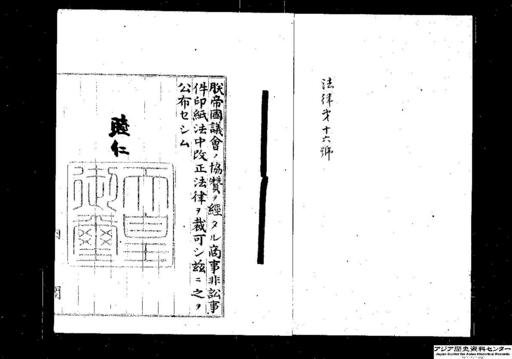 法律第十六號
朕帝國議會ノ協贊ヲ經タル商事非訟事
件印紙法中改正法律ヲ裁可シ茲ニ之ヲ
公布セシム
睦仁
天皇御璽
アジア歴史資料センター
Japan Center for Asian Historical Records